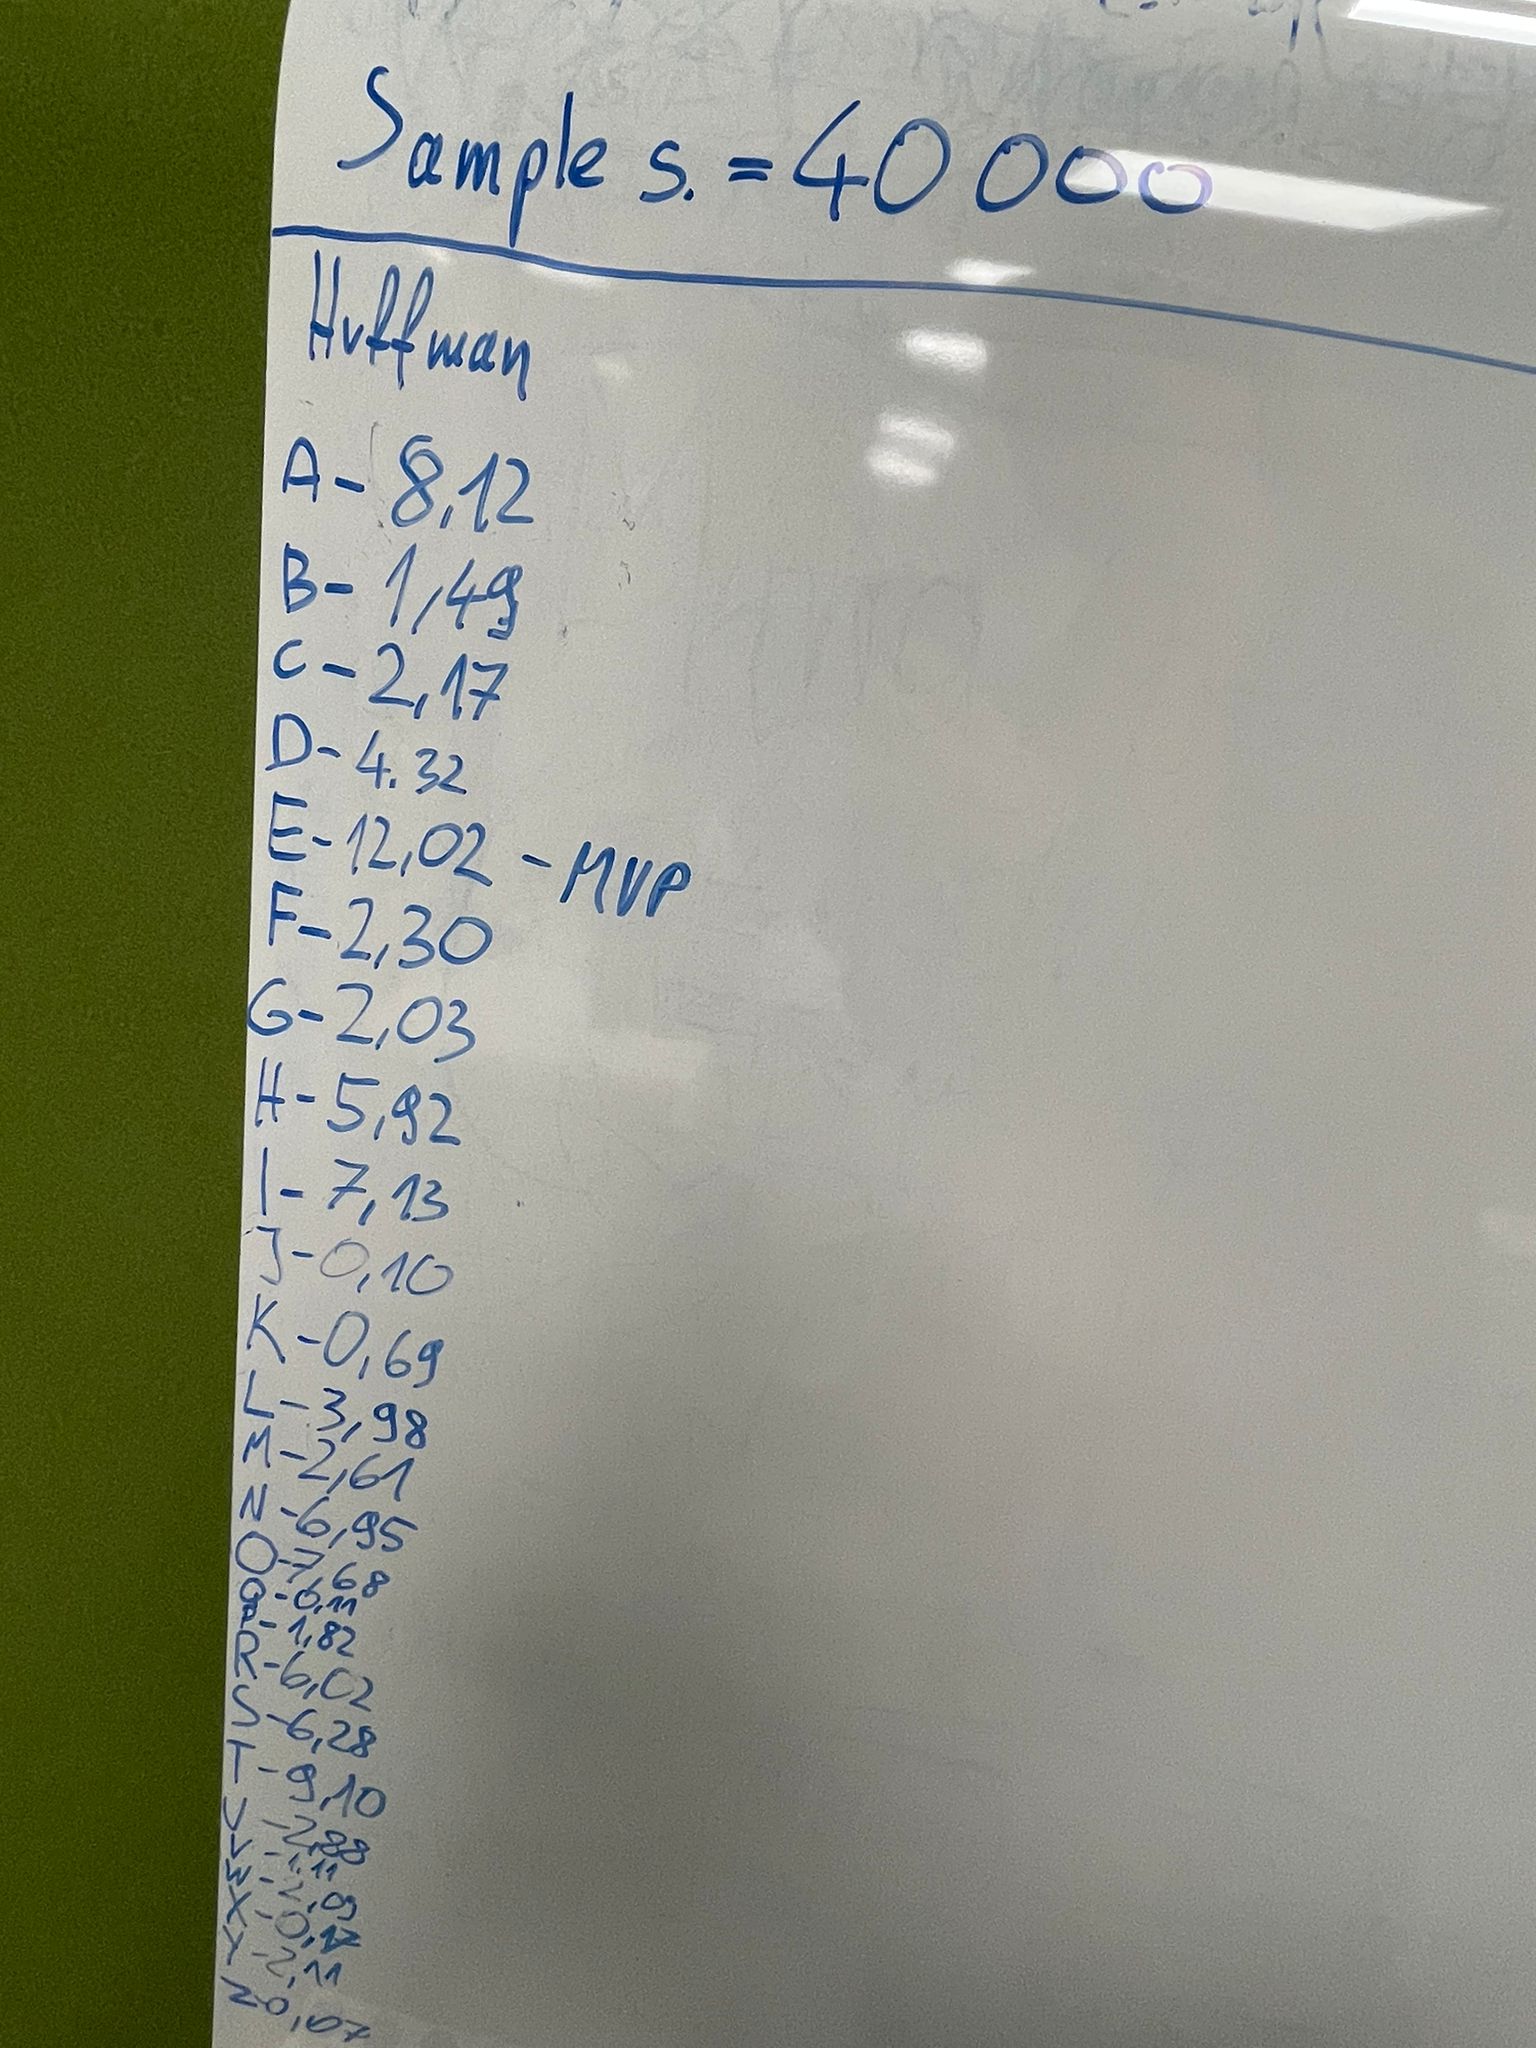 Sample s. = 40 000
Huffman
A - 8,12
B - 1,49
C - 2,17
D - 4.32
E - 12,02 - MVP
F - 2,30
G - 2,03
H - 5,92
I - 7,13
J - 0,10
K - 0,69
L - 3,98
M - 2,61
N - 6,95
O - 7,68
Q - 0,11
P - 1,82
R - 6,02
S - 6,28
T - 9,10
U - 2,88
V - 1,11
W - 2,09
X - 0,17
Y - 2,11
Z 0,07